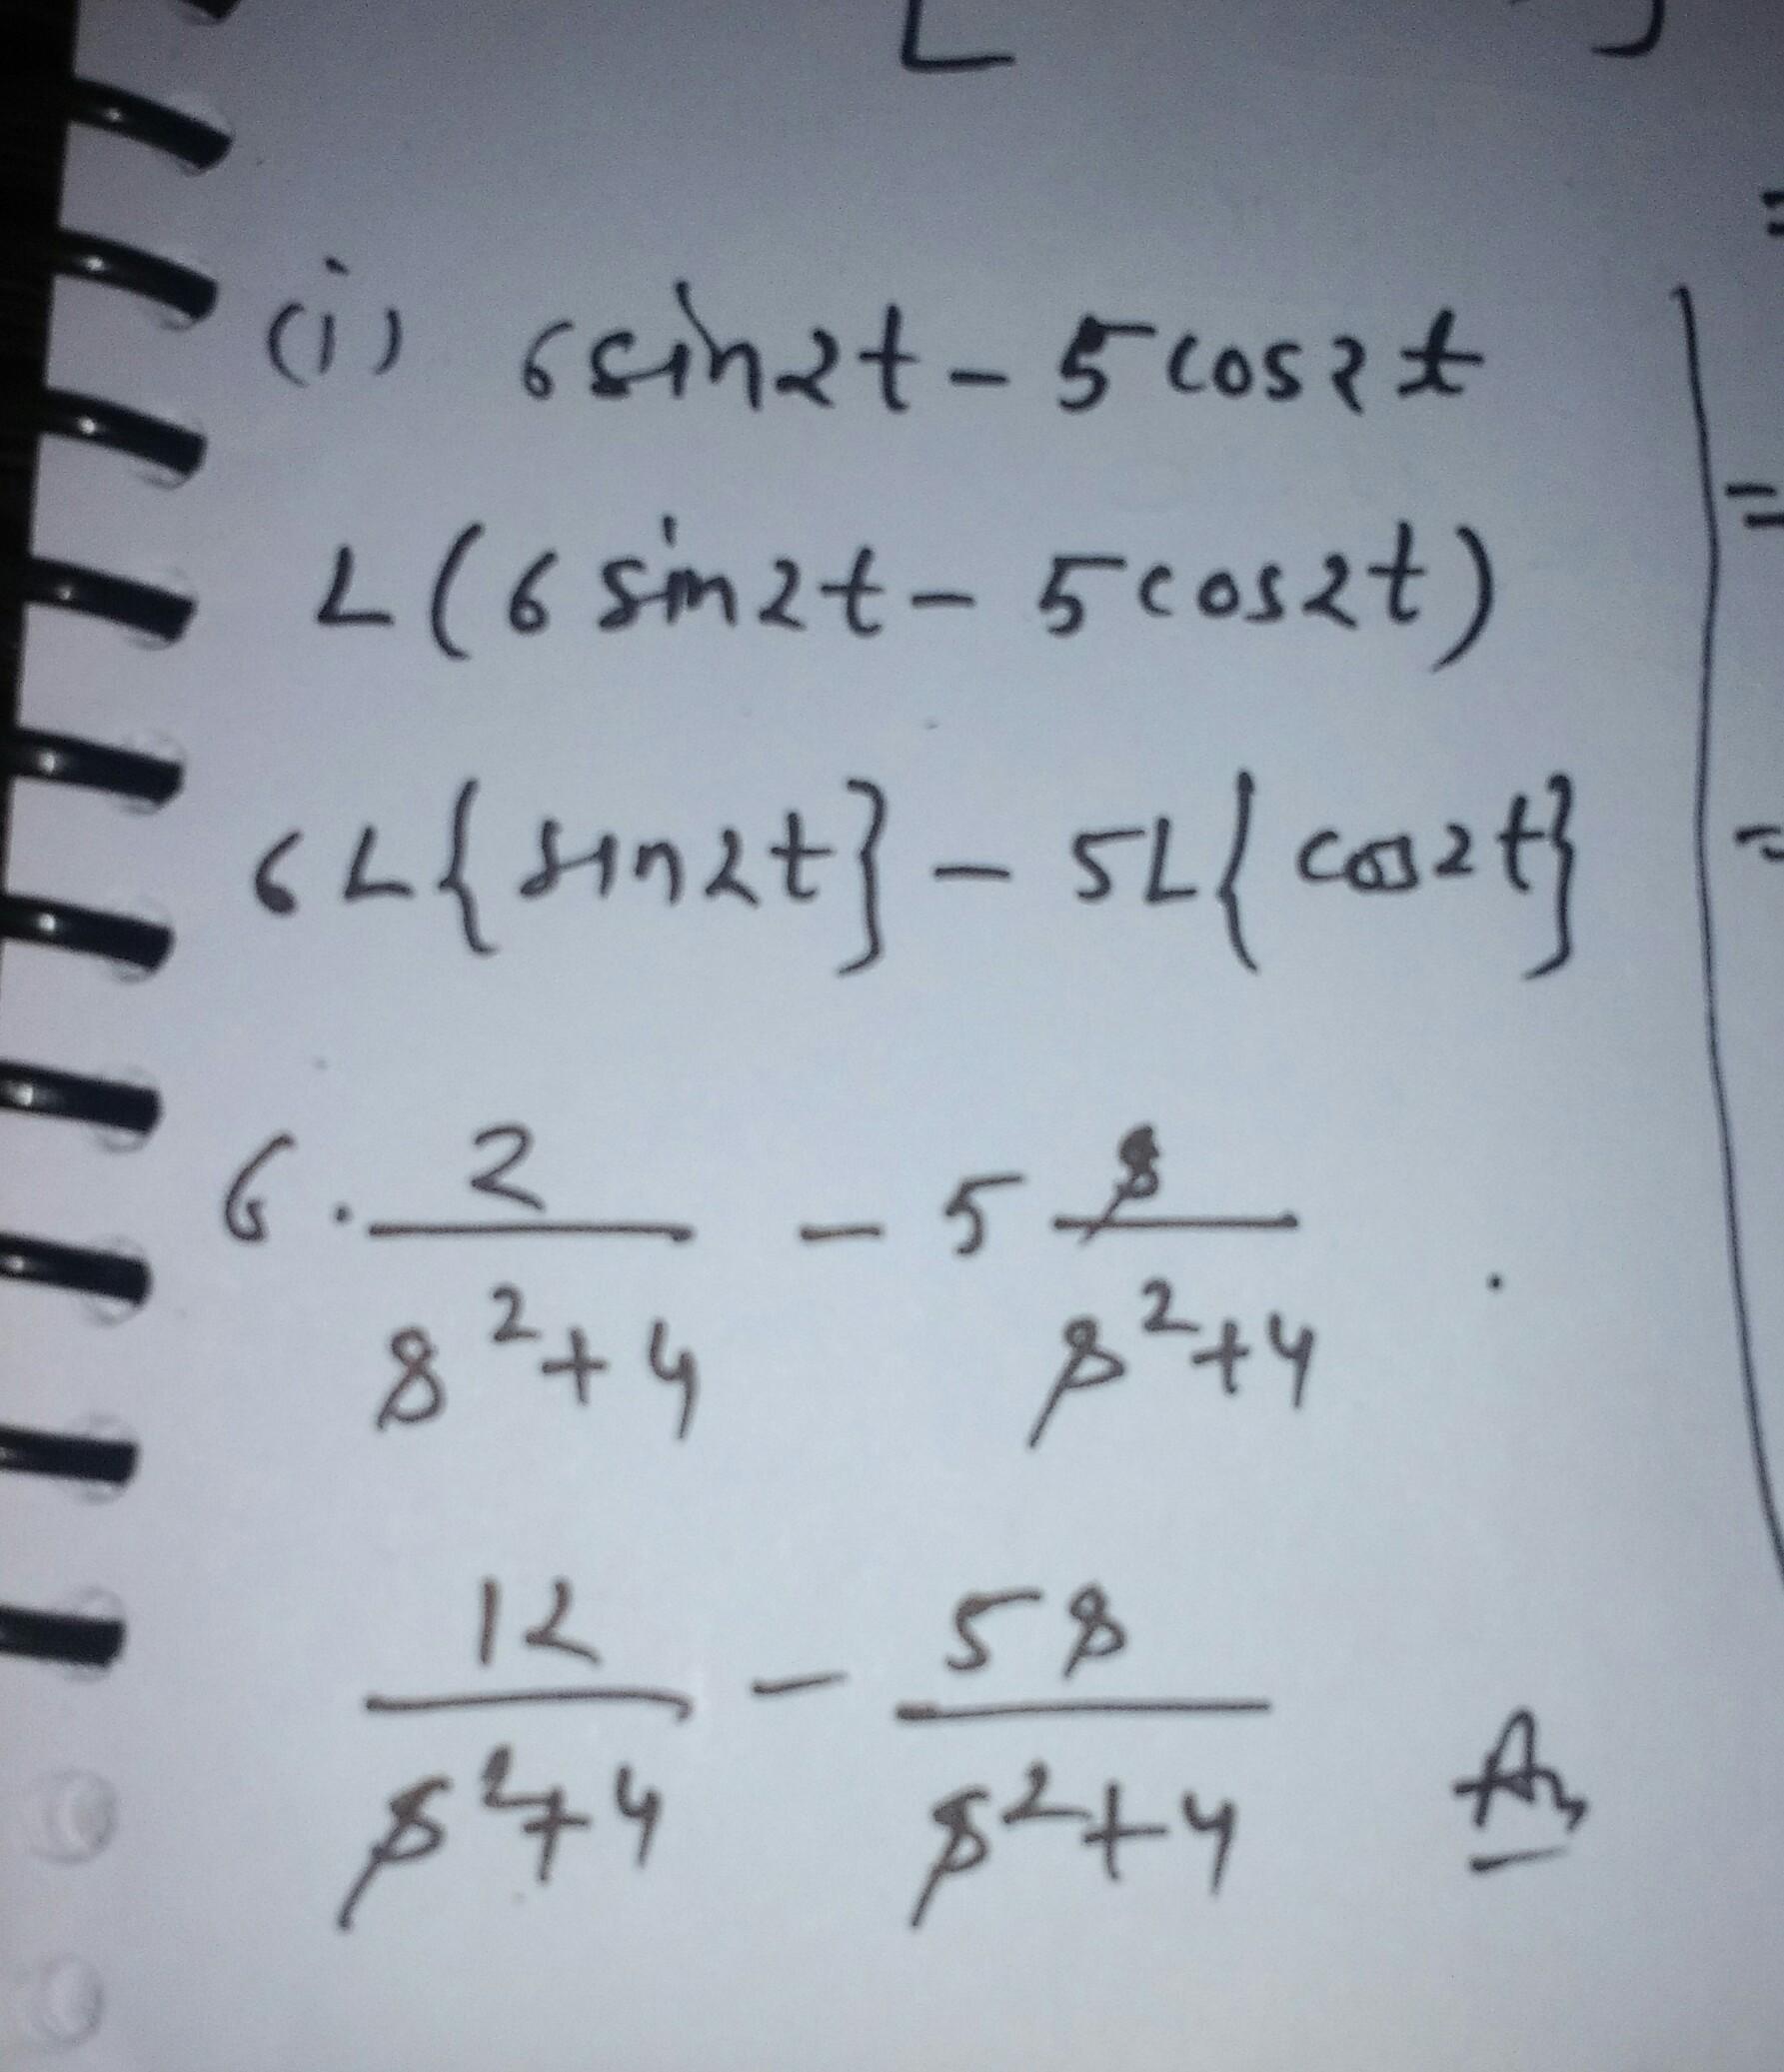 [ ]
(i) 6 sin2t - 5 cos2t
L(6 sin2t - 5 cos2t)
6L{sin2t} - 5L{cos2t}
6 · 2/(s²+4) - 5 s/(s²+4) .
12/(s²+4) - 5s/(s²+4) Ans
=
=
=